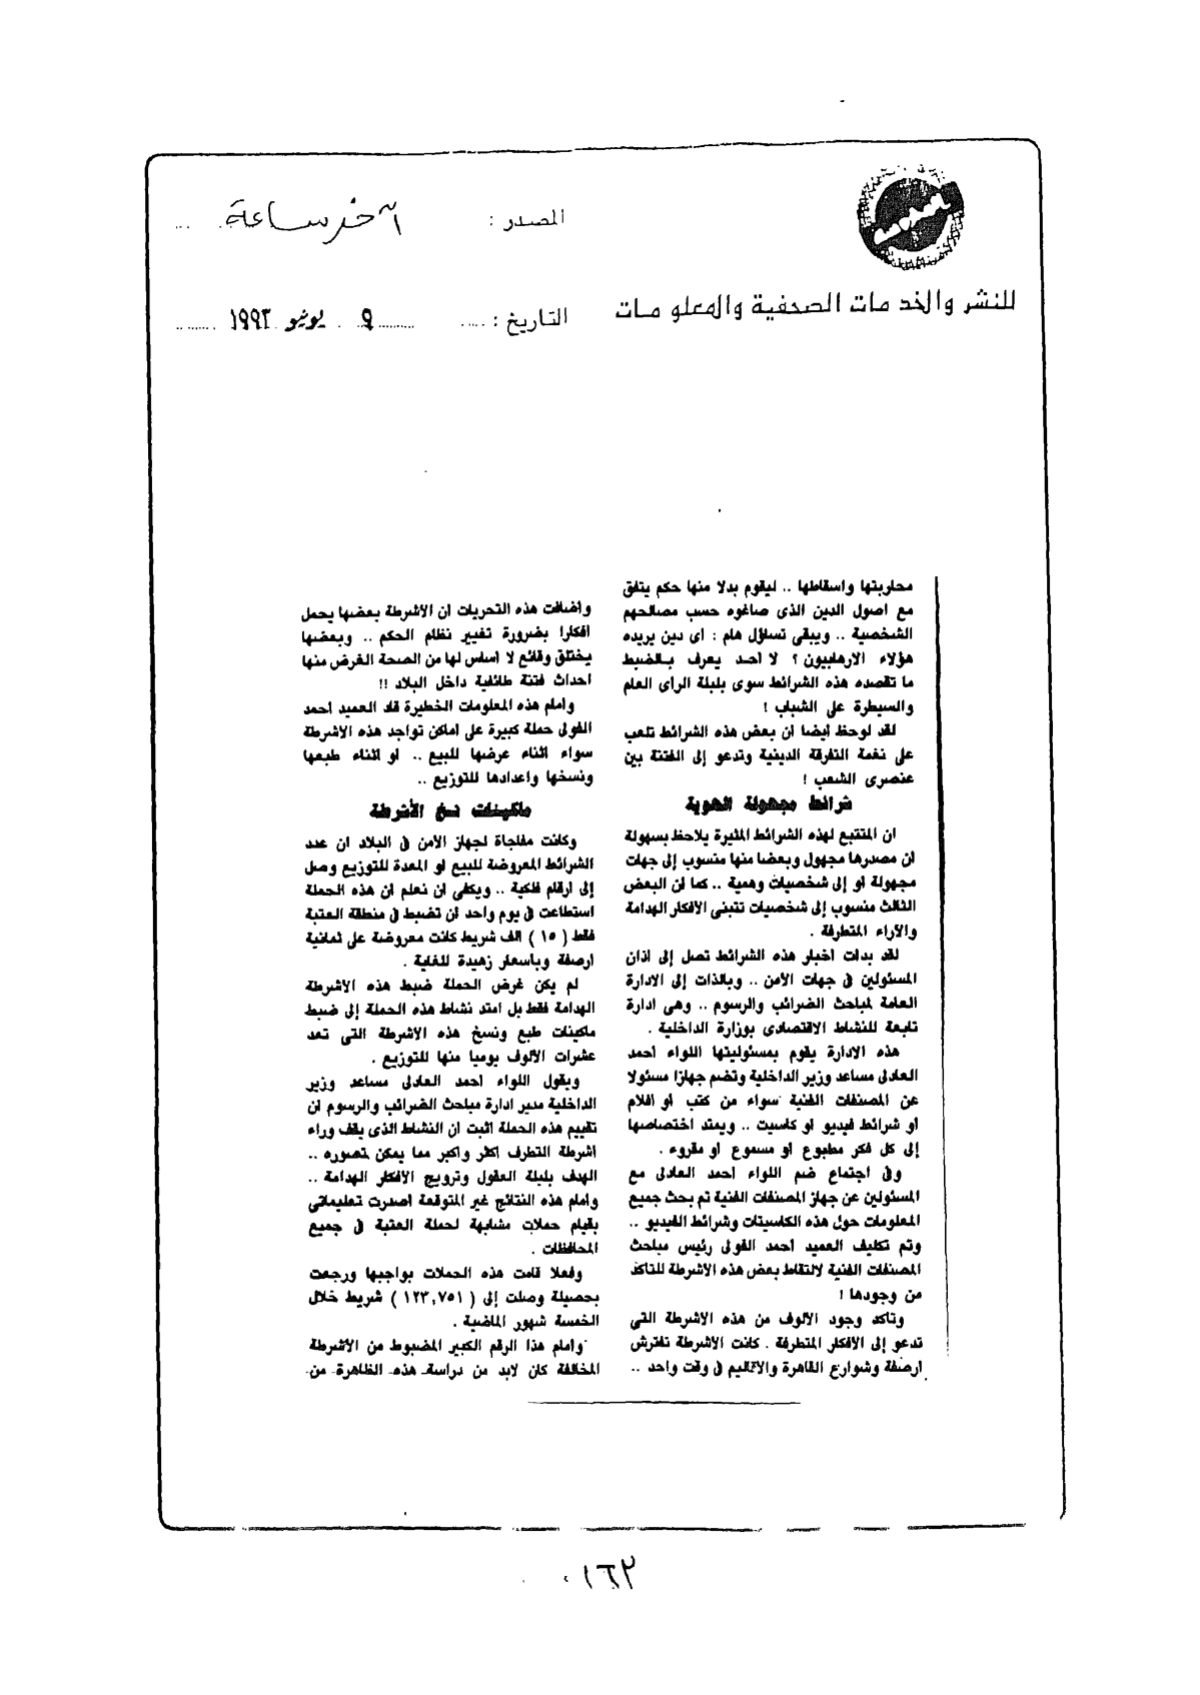 المصدر : آخر ساعة
للنشر والخدمات الصحفية والمعلومات
التاريخ : ٩ يونيو ١٩٩٢
محاربتها واسقاطها .. ليقوم بدلا منها حكم يتفق
مع اصول الدين الذى صاغوه حسب مصالحهم
الشخصية .. ويبقى تساؤل هام : اى دين يريده
هؤلاء الارهابيون ؟ لا احد يعرف بالضبط
ما تقصده هذه الشرائط سوى بلبلة الراى العام
والسيطرة على الشباب !
لقد لوحظ ايضا ان بعض هذه الشرائط تلعب
على نغمة التفرقة الدينية وتدعو إلى الفتنة بين
عنصرى الشعب !
شرائط مجهولة الهوية
ان المتتبع لهذه الشرائط المثيرة يلاحظ بسهولة
ان مصدرها مجهول وبعضا منها منسوب إلى جهات
مجهولة او إلى شخصيات وهمية .. كما ان البعض
الثالث منسوب إلى شخصيات تتبنى الأفكار الهدامة
والآراء المتطرفة .
لقد بدات اخبار هذه الشرائط تصل إلى اذان
المسئولين فى جهات الأمن .. وبالذات إلى الادارة
العامة لمباحث الضرائب والرسوم .. وهى ادارة
تابعة للنشاط الاقتصادى بوزارة الداخلية .
هذه الادارة يقوم بمسئوليتها اللواء احمد
العادلى مساعد وزير الداخلية وتضم جهازا مسئولا
عن المصنفات الفنية سواء من كتب او افلام
او شرائط فيديو او كاسيت .. ويمتد اختصاصها
إلى كل فكر مطبوع او مسموع او مقروء .
وفى اجتماع ضم اللواء احمد العادلى مع
المسئولين عن جهاز المصنفات الفنية تم بحث جميع
المعلومات حول هذه الكاسيتات وشرائط الفيديو ..
وتم تكليف العميد احمد الفولى رئيس مباحث
المصنفات الفنية لالتقاط بعض هذه الأشرطة للتأكد
من وجودها !
وتاكد وجود الألوف من هذه الأشرطة التى
تدعو إلى الأفكار المتطرفة . كانت الأشرطة تفترش
ارصفة وشوارع القاهرة والاقاليم فى وقت واحد ..
واضافت هذه التحريات ان الاشرطة بعضها يحمل
افكارا بضرورة تغيير نظام الحكم .. وبعضها
يختلق وقائع لا اساس لها من الصحة الغرض منها
احداث فتنة طائفية داخل البلاد !!
وامام هذه المعلومات الخطيرة قاد العميد احمد
الفولى حملة كبيرة على اماكن تواجد هذه الأشرطة
سواء اثناء عرضها للبيع .. او اثناء طبعها
ونسخها واعدادها للتوزيع ..
ماكينات نسخ الأشرطة
وكانت مفاجاة لجهاز الأمن فى البلاد ان عدد
الشرائط المعروضة للبيع او المعدة للتوزيع وصل
إلى ارقام فلكية .. ويكفى ان نعلم ان هذه الحملة
استطاعت فى يوم واحد ان تضبط فى منطقة العتبة
فقط ( ١٥ ) الف شريط كانت معروضة على ثمانية
ارصفة وباسعار زهيدة للغاية .
لم يكن غرض الحملة ضبط هذه الأشرطة
الهدامة فقط بل امتد نشاط هذه الحملة إلى ضبط
ماكينات طبع ونسخ هذه الاشرطة التى تعد
عشرات الألوف يوميا منها للتوزيع .
ويقول اللواء احمد العادلى مساعد وزير
الداخلية مدير ادارة مباحث الضرائب والرسوم ان
تقييم هذه الحملة اثبت ان النشاط الذى يقف وراء
اشرطة التطرف اكثر واكبر مما يمكن تصوره ..
الهدف بلبلة العقول وترويج الأفكار الهدامة ..
وامام هذه النتائج غير المتوقعة اصدرت تعليماتى
بقيام حملات مشابهة لحملة العتبة فى جميع
المحافظات .
وفعلا قامت هذه الحملات بواجبها ورجعت
بحصيلة وصلت إلى ( ١٢٣,٧٥١ ) شريط خلال
الخمسة شهور الماضية .
وامام هذا الرقم الكبير المضبوط من الأشرطة
المخالفة كان لابد من دراسة هذه الظاهرة من
١٦٢